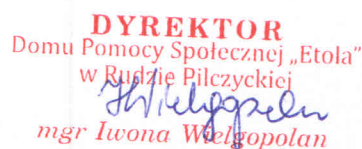 DYREKTOR
Domu Pomocy Społecznej „Etola”
w Rudzie Pilczyckiej
mgr Iwona Wielgopolan